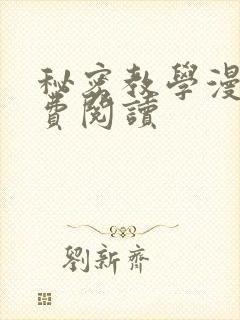 秘密教學漫
費閱讀
劉新齊